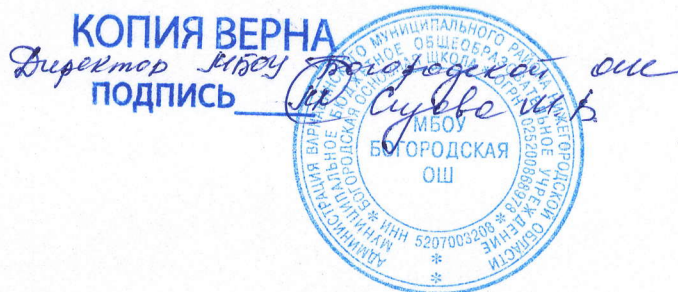 КОПИЯ ВЕРНА
Директор МБОУ Богородской ОШ
ПОДПИСЬ
АДМИНИСТРАЦИЯ МУНИЦИПАЛЬНОГО НИЖЕГОРОДСКОЙ ОБЛАСТИ
МУНИЦИПАЛЬНОЕ БЮДЖЕТНОЕ ОБЩЕОБРАЗОВАТЕЛЬНОЕ УЧРЕЖДЕНИЕ
* БОГОРОДСКАЯ ОСНОВНАЯ ШКОЛА * ИНН 5207003208 *
МБОУ
БОГОРОДСКАЯ
ОШ